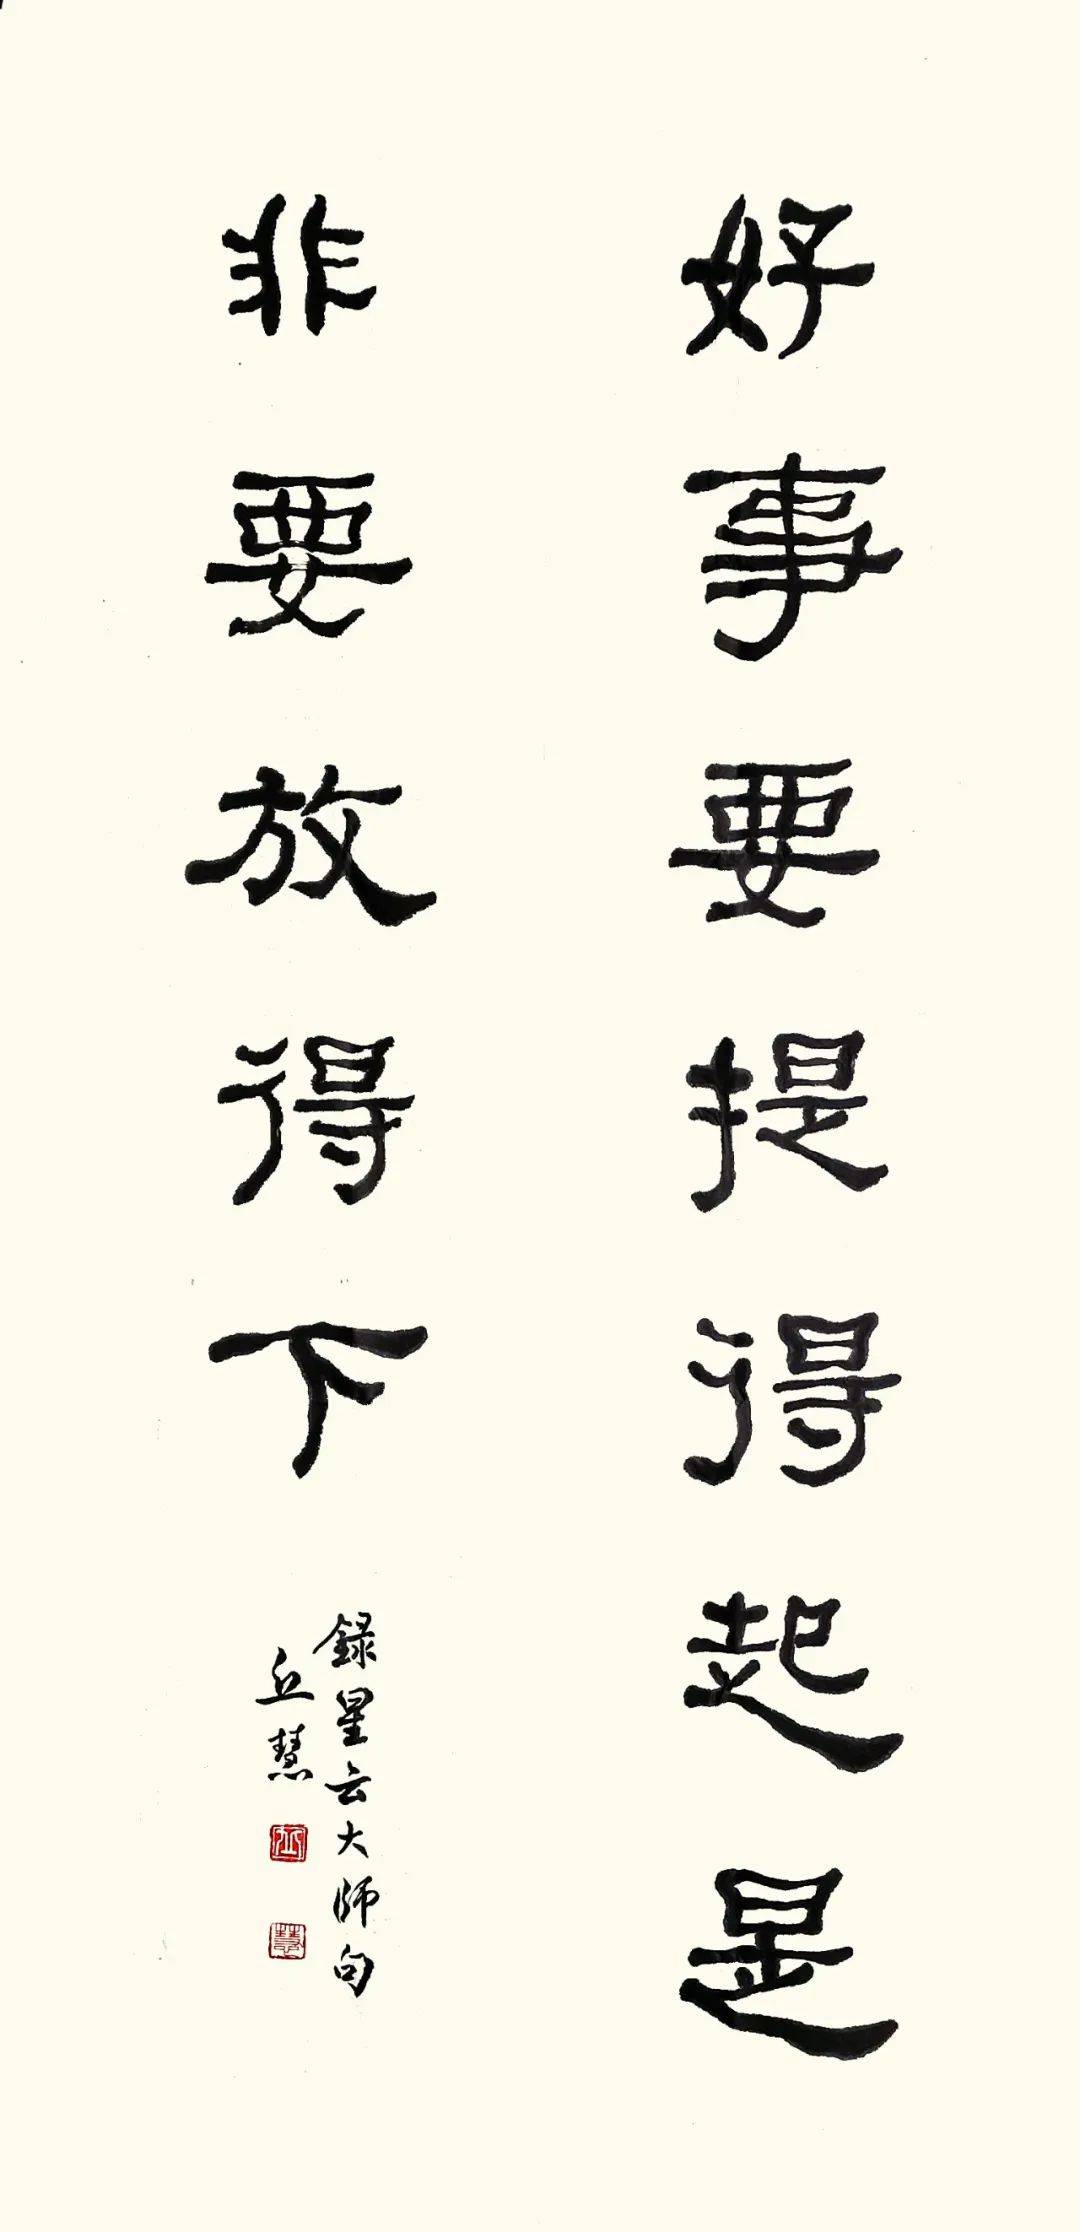 好事要提得起是
非要放得下
録星云大師句
丘慧
丘
慧